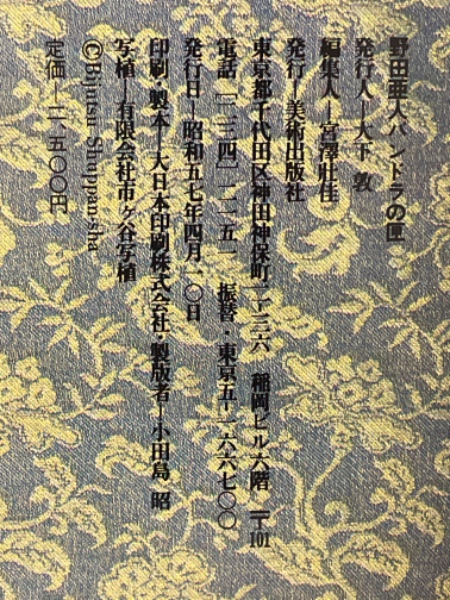 野田亜人パンドラの匣
発行人—大下 敦
編集人—宮澤壯佳
発行—美術出版社
東京都千代田区神田神保町二—三六 稲岡ビル六階 〒101
電話[二三四]二一五一 振替・東京五—一六六七〇〇
発行日—昭和五七年四月一〇日
印刷・製本—大日本印刷株式会社・製版者—小田島 昭
写植—有限会社市ヶ谷写植
©Bijutsu Shuppan-sha
定価—二、五〇〇円